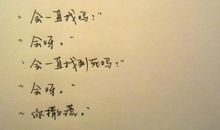 “会一直找吗?”
“会呀。”
“会一直找到死吗?”
“会呀。”
“你撒谎。”